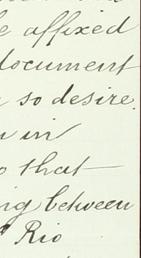 affixed
document
so desire.
in
that
between
Rio